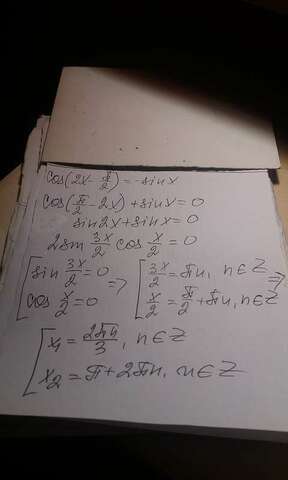 cos(2x-π/2)=-sinx
cos(π/2-2x)+sinx=0
sin2x+sinx=0
2sin 3x/2 cos x/2=0
[sin 3x/2=0 => [3x/2=πn, n∈Z =>
cos x/2=0 x/2=π/2+πn, n∈Z
[x₁=2πn/3, n∈Z
x₂=π+2πn, n∈Z